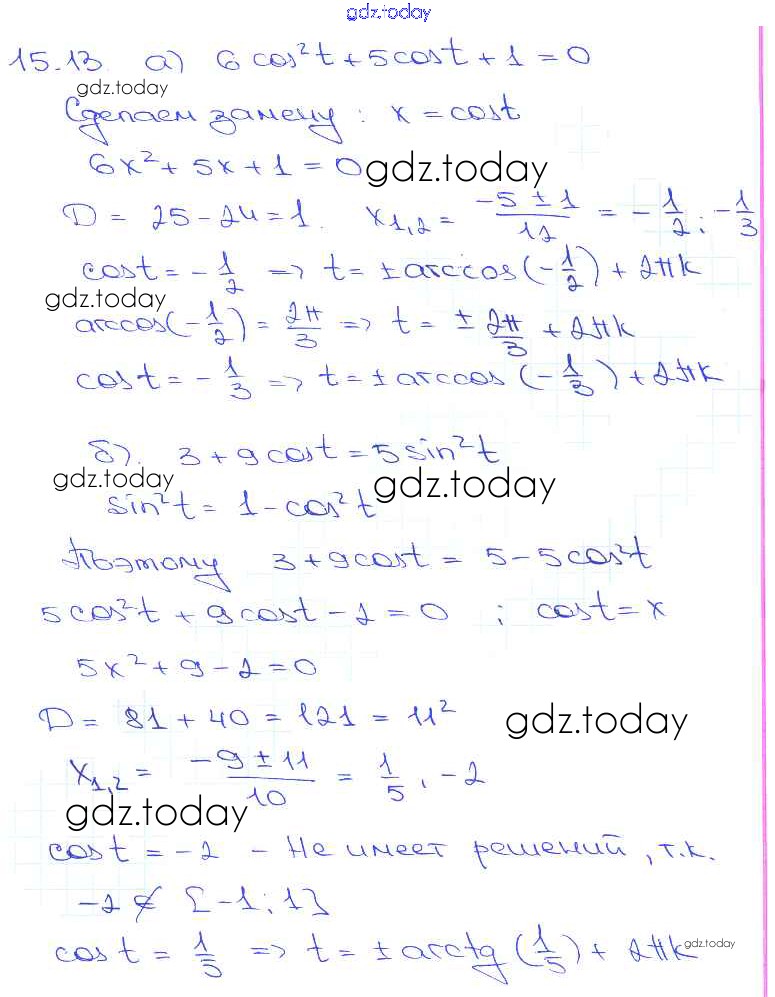 gdz.today
15.13 а) 6 cos²t + 5 cos t + 1 = 0
gdz.today
Сделаем замену : x = cos t
6x² + 5x + 1 = 0 gdz.today
D = 25 - 24 = 1. x₁,₂ = (-5 ± 1)/12 = -1/2 ; -1/3
cos t = -1/2 => t = ± arccos(-1/2) + 2πk
gdz.today
arccos(-1/2) = 2π/3 => t = ± 2π/3 + 2πk
cos t = -1/3 => t = ± arccos(-1/3) + 2πk
б). 3 + 9 cos t = 5 sin²t
gdz.today
sin²t = 1 - cos²t gdz.today
Поэтому 3 + 9 cos t = 5 - 5 cos²t
5 cos²t + 9 cos t - 2 = 0 ; cos t = x
5x² + 9 - 2 = 0
D = 81 + 40 = 121 = 11² gdz.today
x₁,₂ = (-9 ± 11)/10 = 1/5 , -2
gdz.today
cos t = -2 - Не имеет решений, т.к.
-2 ∉ [-1; 1]
cos t = 1/5 => t = ± arctg (1/5) + 2πk gdz.today